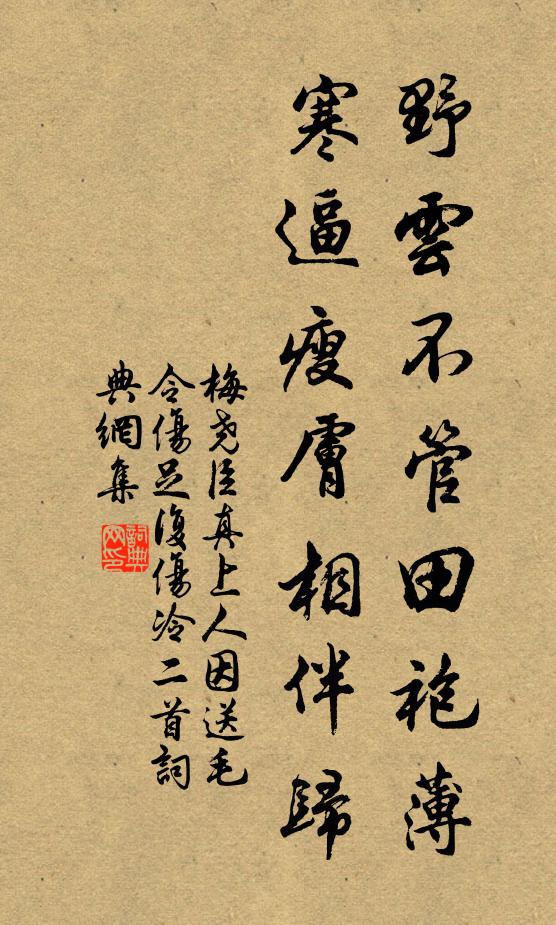 野雲不管田袍薄
寒逼瘦膚相伴歸
梅堯臣真上人因送毛
令傷足復傷冷二首詞
典網集
詞典
网印